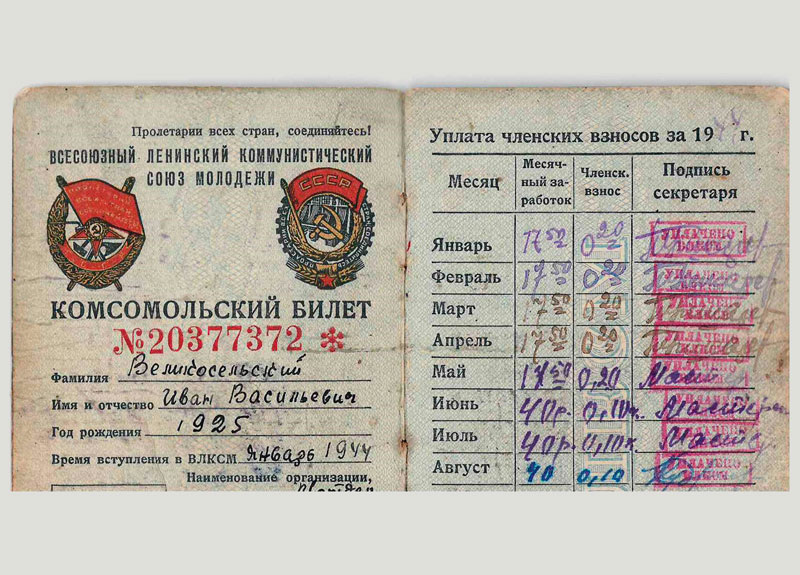 Пролетарии всех стран, соединяйтесь!
ВСЕСОЮЗНЫЙ ЛЕНИНСКИЙ КОММУНИСТИЧЕСКИЙ
СОЮЗ МОЛОДЕЖИ
СССР
КОМСОМОЛЬСКИЙ БИЛЕТ
№20377372
Фамилия Великосельский
Имя и отчество Иван Васильевич
Год рождения 1925
Время вступления в ВЛКСМ январь 1944
Наименование организации,
Уплата членских взносов за 1944 г.
Месяц Месяч-ный за-работок Членск. взнос Подпись секретаря
Январь 17 50 0 20 УПЛАЧЕНО ВЛКСМ
Февраль 17 50 0 20 УПЛАЧЕНО ВЛКСМ
Март 17 50 0 20 УПЛАЧЕНО ВЛКСМ
Апрель 17 50 0 20 УПЛАЧЕНО ВЛКСМ
Май 17 50 0,20
Июнь 40р. 0,10к.
Июль 40р. 0,10к.
Август 40 0,10 УПЛАЧЕНО ВЛКСМ